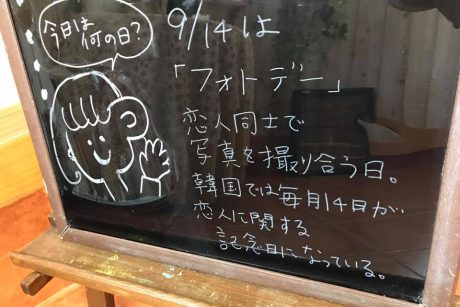 今日は
何の日?
9/14は
「フォトデー」
恋人同士で
写真を撮り合う日。
韓国では毎月14日が
恋人に関する
記念日になっている。